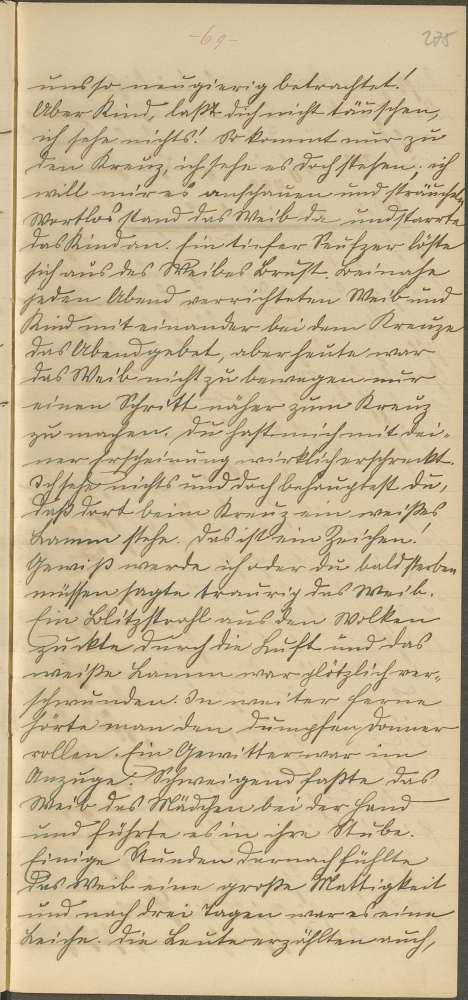 -69-
275
uns so neugierig betrachtet!
Aber Kind, laßt dich nicht täuschen,
ich sehe nichts! So kommt nur zu
den Kreuz, ich sehe es doch stehen, ich
will mir es anschauen und
Wortlos stand das Weib da und starrte
das Kind an. Ein tiefer Seufzer löste
sich aus des Weibes Brust. Beinahe
jeden Abend verrichteten Weib und
Kind mit einander bei dem Kreuze
das Abendgebet, aber heute war
das Weib nicht zu bewegen nur
einen Schritt näher zum Kreuz
zu machen. Du hast mich mit dei-
ner Erscheinung wirklich erschreckt.
Ich sehe nichts und doch behauptest du,
daß dort beim Kreuz ein weißes
Lamm stehe. Das ist ein Zeichen.
Gewiß werde ich oder du bald sterben
müssen sagte traurig das Weib.
Ein Blitzstrahl aus den Wolken
zuckte durch die Luft und das
weiße Lamm war plötzlich ver-
schwunden. In weiter Ferne
hörte man den dumpfen Donner
rollen. Ein Gewitter war im
Anzuge. Schweigend faßte das
Weib das Mädchen bei der Hand
und führte es in ihre Stube.
Einige Stunden darnach fühlte
das Weib eine große Mattigkeit
und nach drei Tagen war es eine
Leiche. Die Leute erzählten auch,